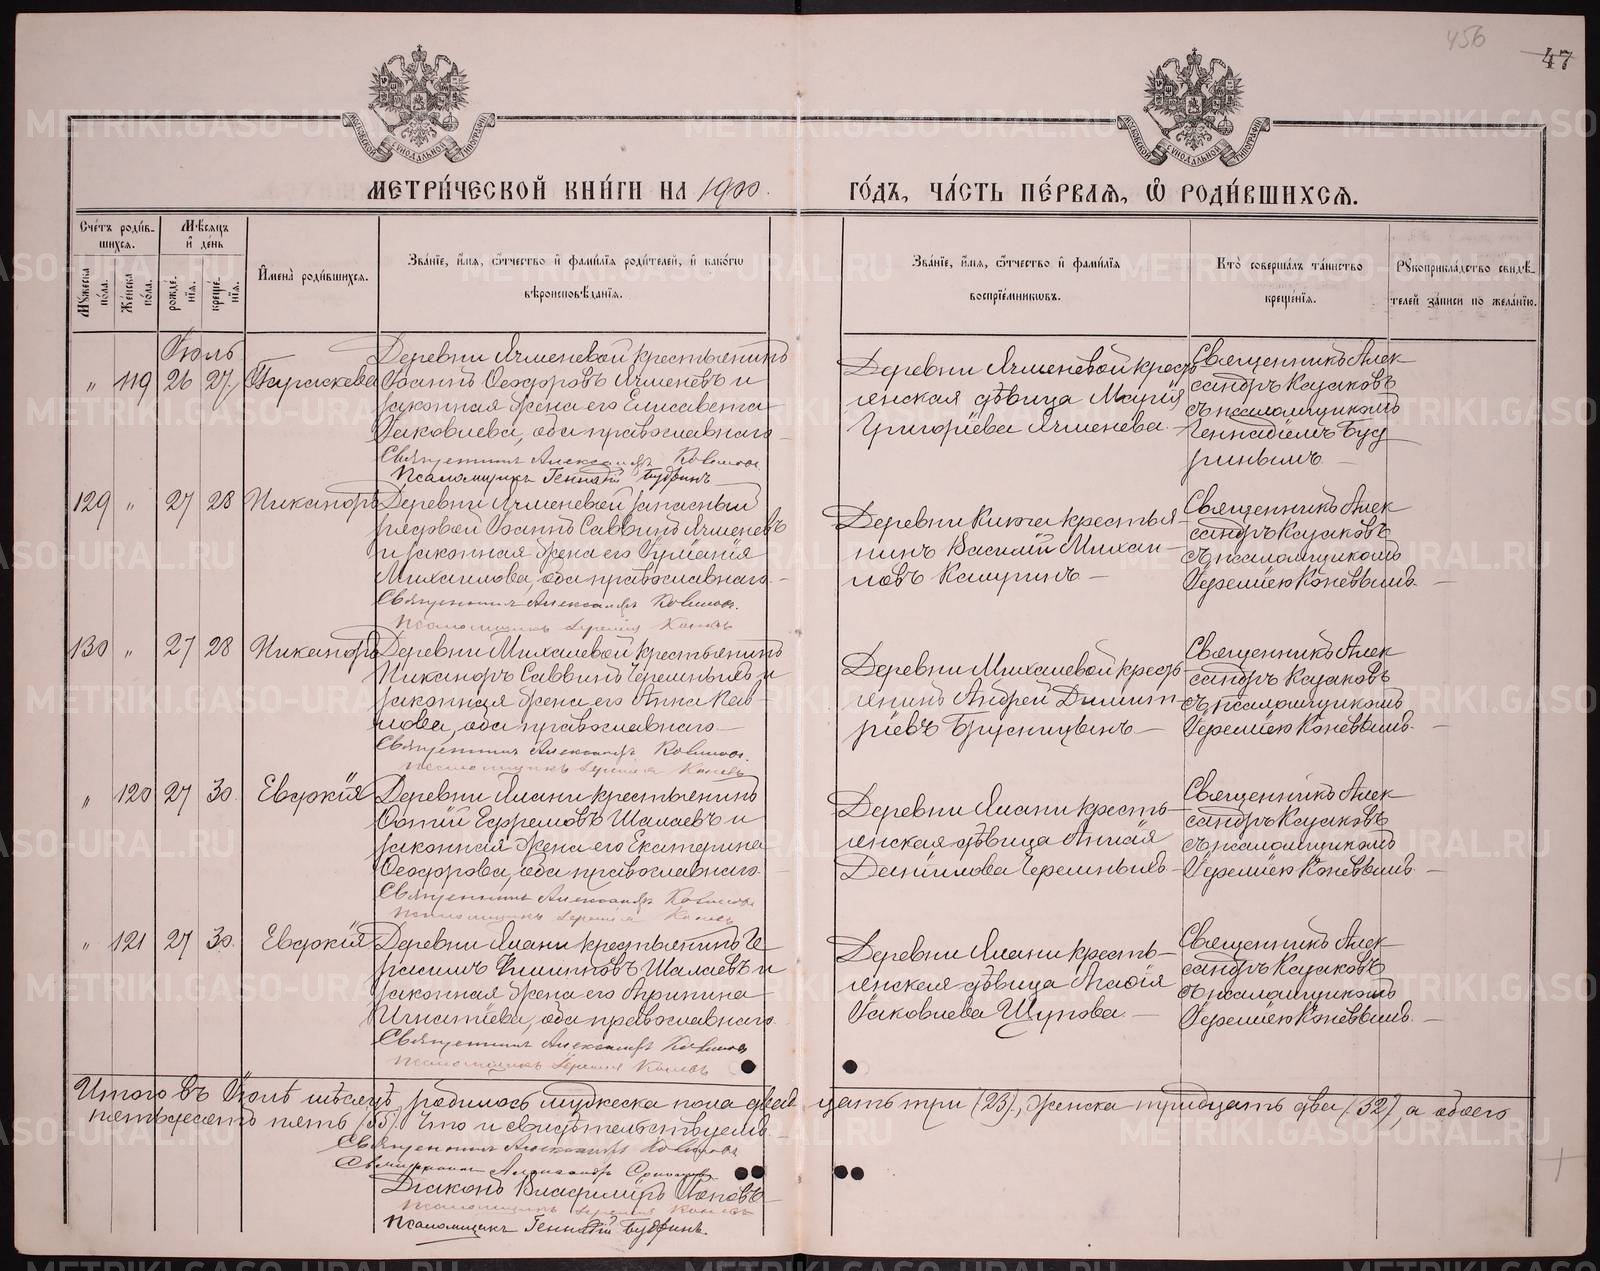 456
47
МЕТРИ́ЧЕСКОЙ КНИ́ГИ НА 1900. ГО́ДЪ, ЧА́СТЬ ПЕ́РВАѦ, Ѡ҆ РОДИ́ВШИХСѦ.
Сче́тъ роди́в-
шихсѧ.
Мѣ́сѧцъ
и҆ де́нь
Мꙋ́жеска по́ла.
Же́нска по́ла.
рожде́-
нїѧ.
креще́-
нїѧ.
И҆мена̀ роди́вшихсѧ.
Зва́нїе, и҆́мѧ, ѻ҆́тчество и҆ фами́лїѧ роди́телей, и҆ како́гѡ
вѣроисповѣ́данїѧ.
Зва́нїе, и҆́мѧ, ѻ҆́тчество и҆ фами́лїѧ
воспрїе́мникѡвъ.
Кто̀ соверша́лъ та́инство
креще́нїѧ.
Рꙋкоприкла́дство свидѣ́-
телей за́писи по жела́нїю.
Іюль
" 119 26 27. Параскева
Деревни Ячменевой крестьянинъ
Іоаннъ Ѳеодоровъ Ячменевъ и
законная жена его Елисавета
Іаковлева, оба православнаго
Священникъ Александръ Казаковъ
Псаломщикъ Геннадій Будринъ
Деревни Ячменевой кресть
янская дѣвица Марія
Григоріева Ячменева.
Священникъ Алек
сандръ Казаковъ
съ псаломщикомъ
Геннадіемъ Буд
ринымъ
129 " 27 28 Никаноръ
Деревни Ячменевой запасный
рядовой Іоаннъ Саввинъ Ячменевъ
и законная жена его Іуліанія
Михаилова, оба православнаго
Священникъ Александръ Казаковъ.
Псаломщикъ Іеремія Коневъ
Деревни крестья-
нинъ Василій Михаи-
ловъ
Священникъ Алек
сандръ Казаковъ
съ псаломщикомъ
Іереміею Коневымъ.
130 " 27 28 Никаноръ
Деревни Михалевой крестьянинъ
Никаноръ Саввинъ Черемныхъ и
законная жена его Анна Пав-
лова, оба православнаго
Священникъ Александръ Казаковъ.
Псаломщикъ Іеремія Коневъ
Деревни Михалевой кресть
янинъ Андрей Димит-
ріевъ Брусницынъ
Священникъ Алек
сандръ Казаковъ
съ псаломщикомъ
Іереміею Коневымъ.
" 120 27 30. Евдокія
Деревни Ялани крестьянинъ
Фотій Ефремовъ Шалаевъ и
законная жена его Екатерина
Ѳеодорова, оба православнаго
Священникъ Александръ Казаковъ
Псаломщикъ Іеремія Коневъ
Деревни Ялани кресть-
янская дѣвица
Даніилова Черемныхъ
Священникъ Алек
сандръ Казаковъ
съ псаломщикомъ
Іереміею Коневымъ.
" 121 27 30. Евдокія
Деревни Ялани крестьянинъ Ге
расимъ Шалаевъ и
законная жена его Агрипина
Игнатіева, оба православнаго.
Священникъ Александръ Казаковъ
Псаломщикъ Іеремія Коневъ
Деревни Ялани кресть-
янская дѣвица Агафія
Іаковлева Щупова.
Священникъ Алек
сандръ Казаковъ
съ псаломщикомъ
Іереміею Коневымъ.
Итого въ Іюлѣ мѣсяцѣ родилось мужеска пола двадцать три (23), женска тридцать два (32), а обоего
пятьдесятъ пять (55). Что и свидѣтельствуемъ.
Священникъ Александръ Казаковъ
Священникъ Александръ
Діаконъ Владиміръ Поповъ
Псаломщикъ Іеремія Коневъ
Псаломщикъ Геннадій Будринъ.
METRIKI.GASO-URAL.RU